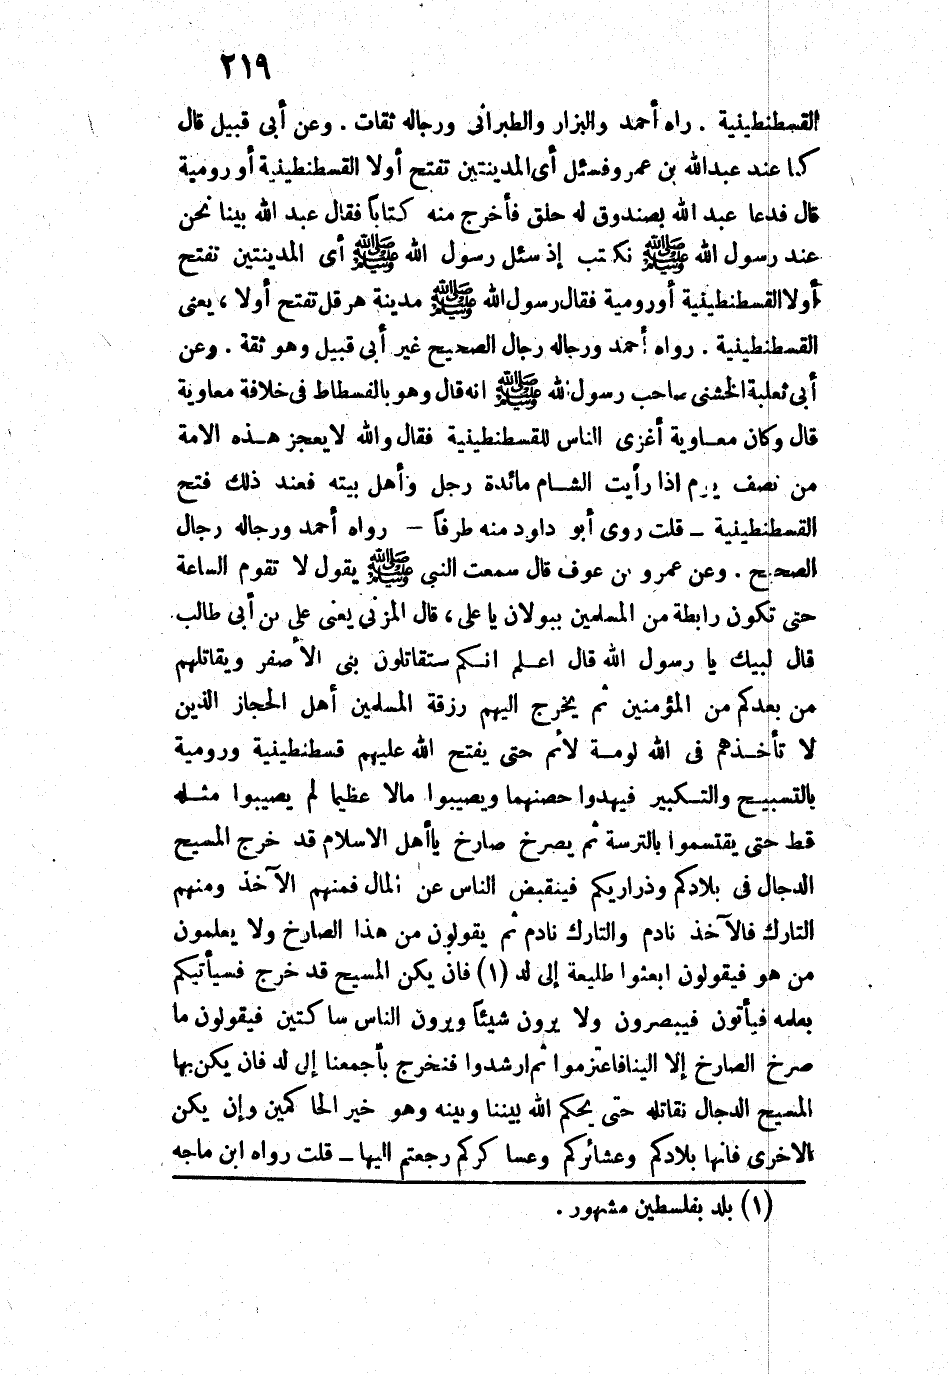 ٢١٩
القسطنطينية . راه أحمد والبزار والطبرانى ورجاله ثقات . وعن أبى قبيل قال
كنا عند عبدالله بن عمرو فسئل أى المدينتين تفتح أولا القسطنطينية أو رومية
قال فدعا عبد الله بصندوق له حلق فأخرج منه كتاباً فقال عبد الله بينا نحن
عند رسول الله ﷺ نكتب إذ سئل رسول الله ﷺ أى المدينتين تفتح
أولا القسطنطينية أو رومية فقال رسول الله ﷺ مدينة هرقل تفتح أولا ، يعنى
القسطنطينية . رواه أحمد ورجاله رجال الصحيح غير أبى قبيل وهو ثقة . وعن
أبى ثعلبة الخشنى صاحب رسول الله ﷺ انه قال وهو بالفسطاط فى خلافة معاوية
قال وكان معـاوية أغزى الناس للقسطنطينية فقال والله لايعجز هـذه الامة
من نصف يوم اذا رأيت الشـام مائدة رجل وأهل بيته فعند ذلك فتح
القسطنطينية ــ قلت روى أبو داود منه طرفاً – رواه أحمد ورجاله رجال
الصحيح . وعن عمرو بن عوف قال سمعت النبى ﷺ يقول لا تقوم الساعة
حتى تكون رابطة من المسلمين ببولان يا على ، قال المزنى يعنى على بن أبى طالب
قال لبيك يا رسول الله قال اعـلم انـكم ستقاتلون بنى الأصفر ويقاتلهم
من بعدكم من المؤمنين ثم يخرج اليهم رزقة المسلمين أهل الحجاز الذين
لا تأخـذهم فى الله لومـة لائم حتى يفتح الله عليهم قسطنطينية ورومية
بالتسبيـح والتـكبير فيهدوا حصنهما ويصيبوا مالا عظيما لم يصيبوا مثـله
قط حتى يقتسموا بالترسة ثم يصرخ صارخ ياأهل الاسلام قد خرج المسيح
الدجال فى بلادكم وذراريكم فينقبض الناس عن المال فمنهم الآخذ ومنهم
التارك فالآخذ نادم والتارك نادم ثم يقولون من هذا الصارخ ولا يعلمون
من هو فيقولون ابعثوا طليعة إلى لد (١) فان يكن المسيح قد خرج فسيأتيكم
بعلمه فيأتون فيبصرون ولا يرون شيئاً ويرون الناس ساكتين فيقولون ما
صرخ الصارخ إلا الينافاعتزموا ثم ارشدوا فنخرج بأجمعنا إلى لد فان يكن بها
المسيح الدجال نقاتله حتى يحكم الله بيننا وبينه وهو خير الحاكمين وإن يكن
الاخرى فانها بلادكم وعشائركم وعساكركم رجعتم اليها ــ قلت رواه ابن ماجه
(١) بلد بفلسطين مشهور .